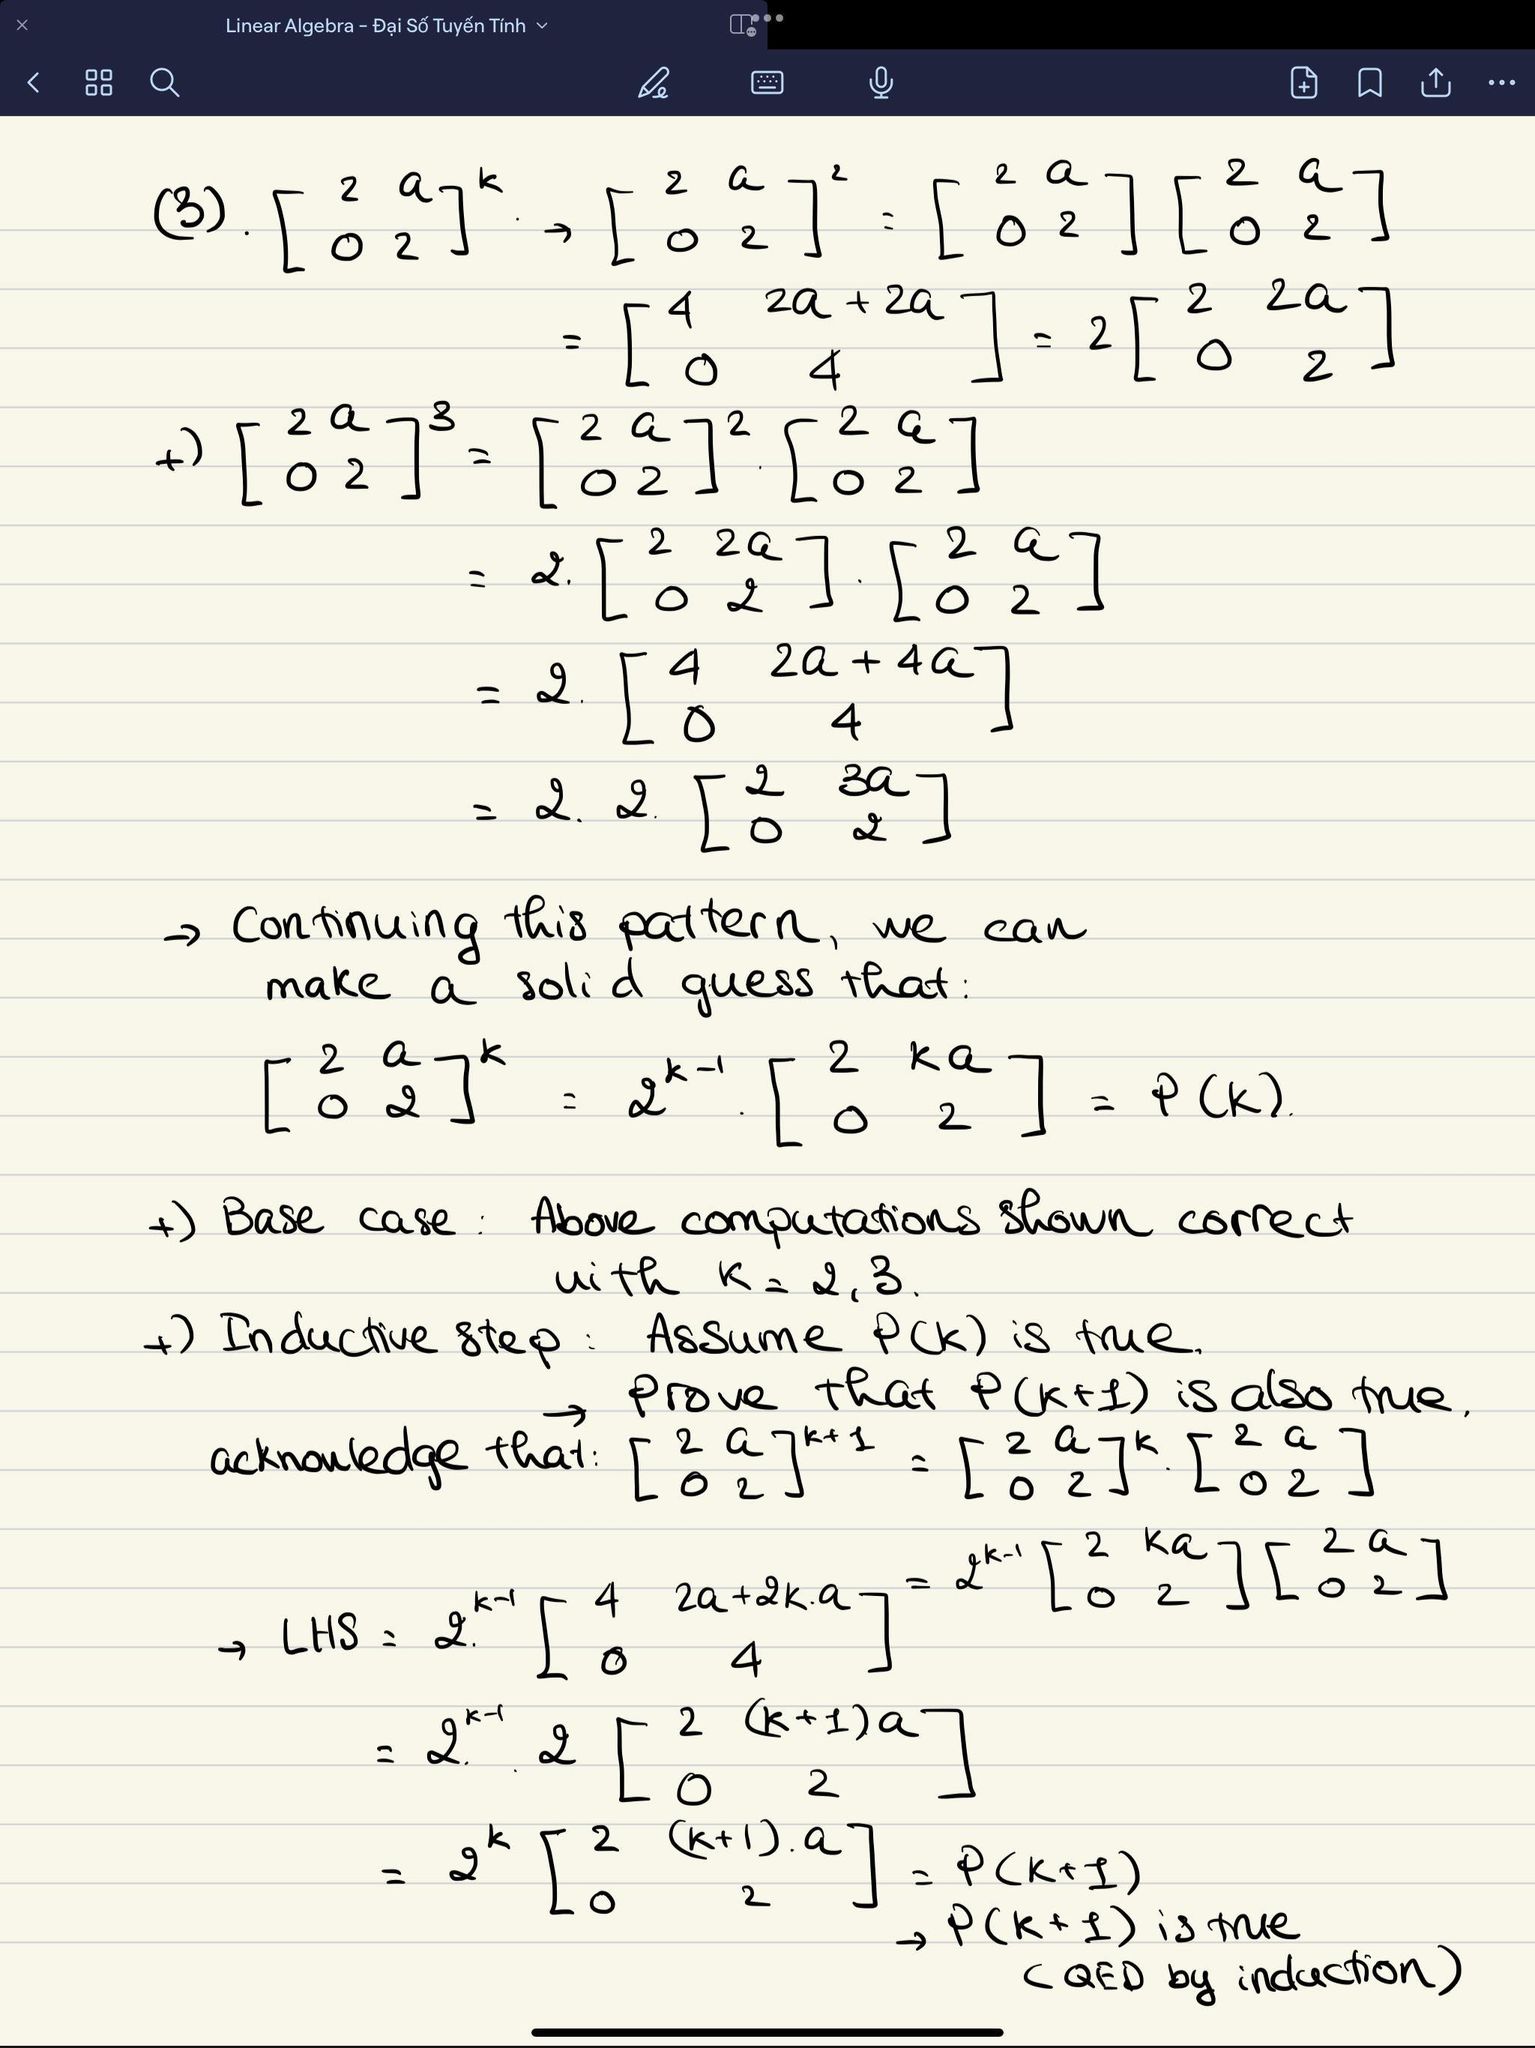 Linear Algebra - Đại Số Tuyến Tính
(3). [2 a; 0 2]^k → [2 a; 0 2]^2 = [2 a; 0 2] [2 a; 0 2]
= [4 2a + 2a; 0 4] = 2 [2 2a; 0 2]
+) [2 a; 0 2]^3 = [2 a; 0 2]^2 . [2 a; 0 2]
= 2. [2 2a; 0 2] . [2 a; 0 2]
= 2. [4 2a + 4a; 0 4]
= 2. 2. [2 3a; 0 2]
→ Continuing this pattern, we can
make a solid guess that:
[2 a; 0 2]^k = 2^{k-1} . [2 ka; 0 2] = P(k).
+) Base case: Above computations shown correct
with k = 2, 3.
+) Inductive step: Assume P(k) is true.
→ Prove that P(k+1) is also true.
acknowledge that: [2 a; 0 2]^{k+1} = [2 a; 0 2]^k . [2 a; 0 2]
= 2^{k-1} [2 ka; 0 2] [2 a; 0 2]
→ LHS = 2^{k-1}. [4 2a+2k.a; 0 4]
= 2^{k-1}. . 2 [2 (k+1)a; 0 2]
= 2^k [2 (k+1).a; 0 2] = P(k+1)
→ P(k+1) is true
(QED by induction)